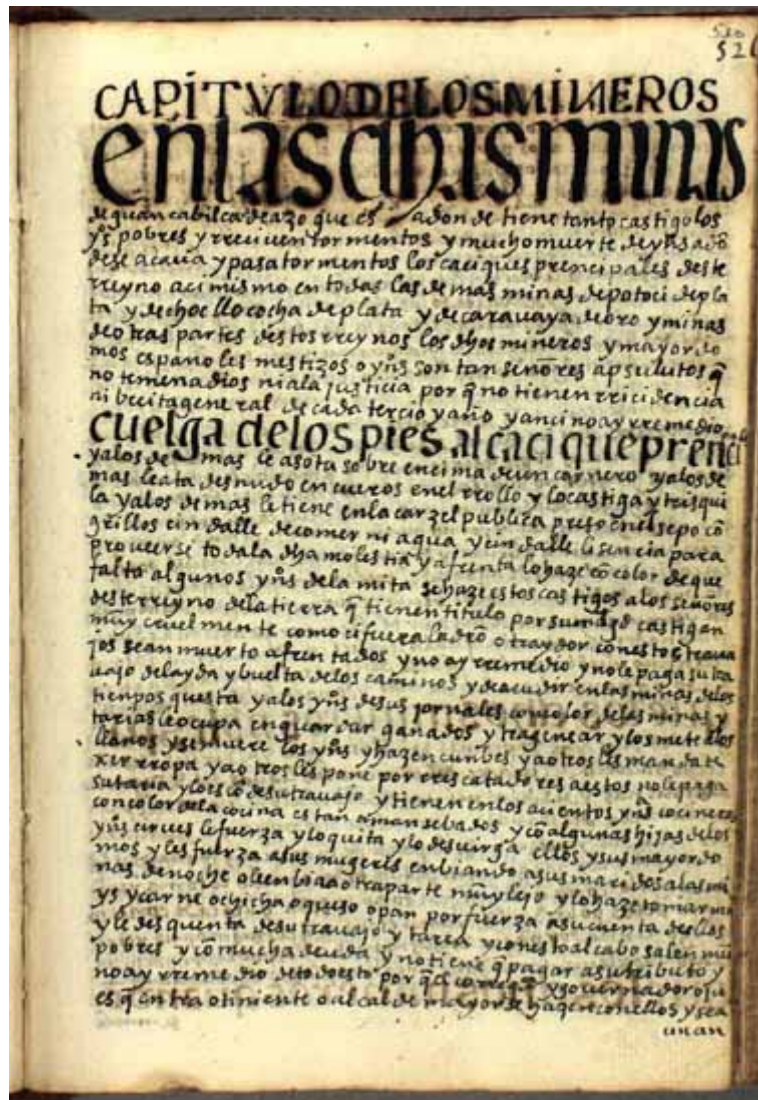 520
52
CAPÍTVLO DE LOS MINEROS
en las dhas minas
de guancabilca de azogue es adonde tiene tanto castigo los
yns pobres y rreciuen tormentos y mucho muerte de yns adō
de se acaua y pasa tormentos los caciques prencipales deste
rreyno aci mismo en todas las demas minas de potoci de pla
ta y de chocllococha de plata y de carauaya de oro y minas
de otras partes destos rreynos los dhos mineros y mayordo
mos españoles mestizos o yns son tan señores apsulutos q̄
no temen a dios ni a la justicia por q̄ no tienen rricidencia
ni becita general de cada tercio y año y anci no ay rremedio
cuelga de los pies al cacique prenci
y a los demas le asota sobre encima de un carnero y a los de
mas le ata desnudo en cueros en el rrollo y lo castiga y trisqui
la y a los demas le tiene en la carzel publica preso en el sepo cō
grillos cin dalle de comer ni agua y cin dalle lisencia para
proueerse toda la dha molestia y afrenta lo haze cō color de que
falta algunos yns de la mita se haze estos castigos a los señores
deste rreyno de la tierra q̄ tienen titulo por su magd castigan
muy cruelmente como ci fuera ladrō o traydor con estos traua
jos se an muerto afrentados y no ay rremedio y no le paga su tra
uajo de la yda y buelta de los caminos y de acudir en las minas de los
tienpos questa y a los yns de sus jornales con color de las minas y
tarias le ocupa en guardar ganados y traginear y los mete a los
llanos y se muere los yns y hazen cunbes y a otros les manda te
xer rropa y a otros les pone por rrescatadores a estos no le paga
su taria y lo es cō de su trauajo y tienen en los acientos yns cocineras
con color de la cocina estan amansebados y cō algunas hijas de los
yns le fuerza y lo quita y lo desuirga ellos y sus mayordo
mos y les fuerza a sus mugeres enbiando a sus maridos a las mi
nas de noche o le enbia a otra parte muy lejo y lo haze tomar ma
ys y carne o chicha o queso o pan por fuerza a su cuenta dellos
y le desquenta de su trauajo y tarea y con esto al cabo salen muy
pobres y cō mucha deuda y no tiene q̄ pagar a su tributo y
no ay rremedio de todo esto por q̄ el corregor y gouernador o ju
es q̄ entra o tiniente o alcalde mayor se hazen con ellos y se a
unan